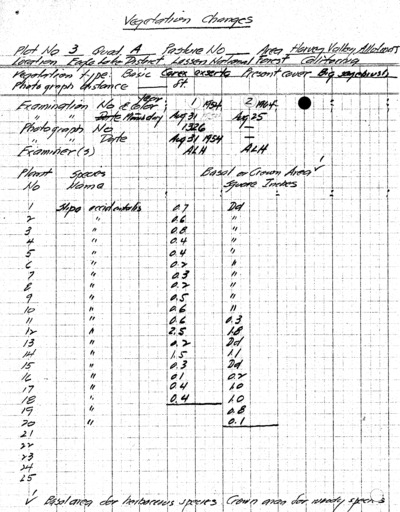 Vegetation Changes
Plot No 3 Quad. A Pasture No Area Harvey Valley, Allotment
Location Eagle Lake District Lassen National Forest California
Vegetation type: Basic Carex exserta Present cover Big sagebrush
Photograph distance ft.
Examination No & Year 1 1954 2 1964
" " Date Aug 31 Aug 25
Photograph No 1326 1—
" Date Aug 31 1954 —
Examiner(s) ALH ALH
Plant Species Basal or Crown Area √
No Name Square Inches
1 Stipa occidentalis 0.7 Dd
2 " 0.6 "
3 " 0.8 "
4 " 0.4 "
5 " 0.4 "
6 " 0.2 "
7 " 0.3 "
8 " 0.2 "
9 " 0.5 "
10 " 0.6 "
11 " 0.6 0.3
12 " 2.5 1.8
13 " 0.2 Dd
14 " 1.5 1.1
15 " 0.3 Dd
16 " 0.1 0.2
17 " 0.4 1.0
18 " 0.4 1.0
19 " 0.8
20 " 0.1
21
22
23
24
25
√ Basal area for herbaceous species Crown area for woody species